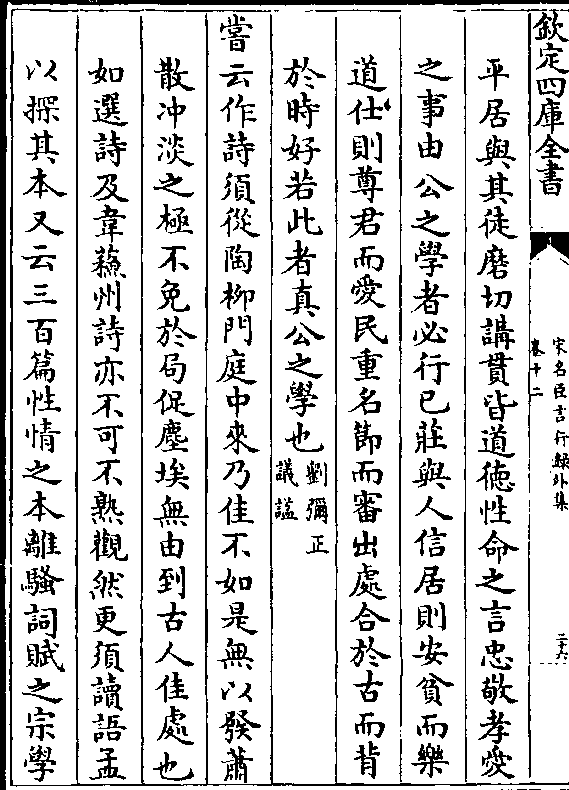 欽定四庫全書
宋名臣言行錄外集
卷十二
二十六
平居與其徒磨切講貫皆道德性命之言忠敬孝愛
之事由公之學者必行已莊與人信居則安貧而樂
道仕則尊君而愛民重名節而審出處合於古而背
於時好若此者真公之學也劉彌正
議諡
嘗云作詩須從陶柳門庭中來乃佳不如是無以發蕭
散冲淡之極不免於局促塵埃無由到古人佳處也
如選詩及韋蘇州詩亦不可不熟觀然更須讀語孟
以探其本又云三百篇性情之本離騷詞賦之宗學